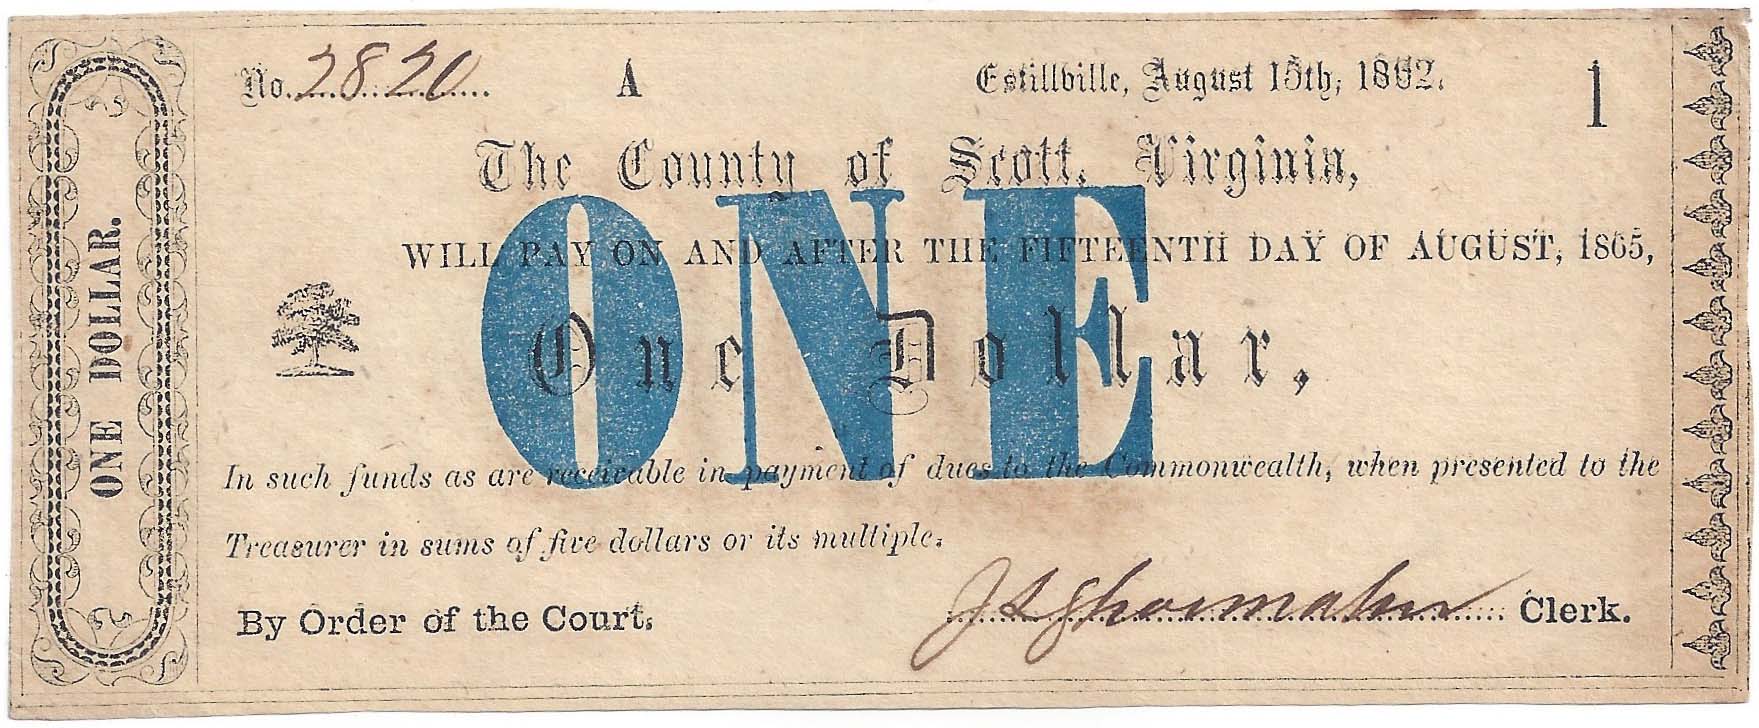 No. 2820 A Estillville, August 15th, 1862. 1
The County of Scott, Virginia,
WILL PAY ON AND AFTER THE FIFTEENTH DAY OF AUGUST, 1865,
ONE
One Dollar,
In such funds as are receivable in payment of dues to the Commonwealth, when presented to the
Treasurer in sums of five dollars or its multiple.
By Order of the Court. Clerk.
ONE DOLLAR.